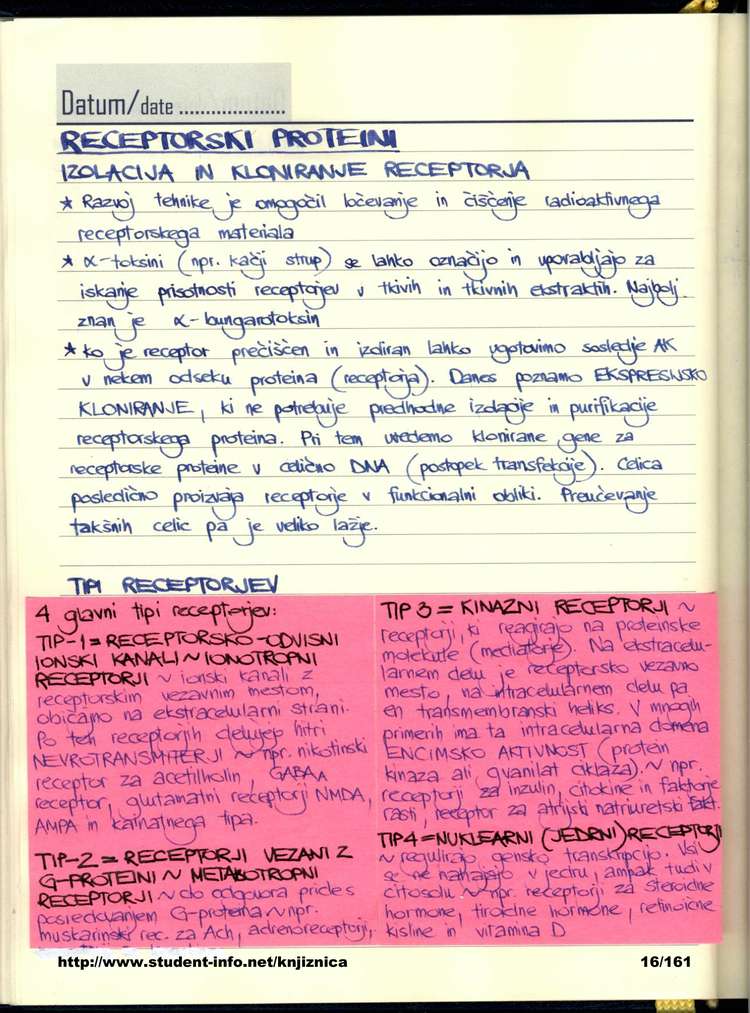 Datum/date ....................
RECEPTORSKI PROTEINI
IZOLACIJA IN KLONIRANJE RECEPTORJA
* Razvoj tehnike je omogočil ločevanje in čiščenje radioaktivnega
receptorskega materiala
* α-toksini (npr. kačji strup) se lahko označijo in uporabljajo za
iskanje prisotnosti receptorjev v tkivih in tkivnih ekstraktih. Najbolj
znan je α-bungarotoksin
* ko je receptor prečiščen in izoliran lahko ugotovimo sosledje AK
v nekem odseku proteina (receptorja). Danes poznamo EKSPRESIJSKO
KLONIRANJE, ki ne potrebuje predhodne izolacije in purifikacije
receptorskega proteina. Pri tem uvedemo klonirane gene za
receptorske proteine v celično DNA (postopek transfekcije). Celica
posledično proizvaja receptorje v funkcionalni obliki. Preučevanje
takšnih celic pa je veliko lažje.
TIPI RECEPTORJEV
4 glavni tipi receptorjev:
TIP-1 = RECEPTORSKO-ODVISNI
IONSKI KANALI ~ IONOTROPNI
RECEPTORJI ~ ionski kanali z
receptorskim vezavnim mestom,
običajno na ekstracelularni strani.
Po teh receptorjih delujejo hitri
NEVROTRANSMITERJI ~ npr. nikotinski
receptor za acetilholin, GABAA
receptor, glutamatni receptorji NMDA,
AMPA in kainatnega tipa.
TIP-2 = RECEPTORJI VEZANI Z
G-PROTEINI ~ METABOTROPNI
RECEPTORJI ~ do odgovora prides
posredovanjem G-proteina ~ npr.
muskarinski rec. za Ach, adrenoreceptorji,
TIP 3 = KINAZNI RECEPTORJI ~
receptorji, ki reagirajo na proteinske
molekule (mediatorje). Na ekstracelu-
larnem delu je receptorsko vezavno
mesto, na intracelularnem delu pa
en transmembranski heliks. V mnogih
primerih ima ta intracelularna domena
ENCIMSKO AKTIVNOST (protein
kinaza ali gvanilat ciklaza). ~ npr.
receptorji za inzulin, citokine in faktorje
rasti, receptor za atrijski natriuretski fakt.
TIP4 = NUKLEARNI (JEDRNI) RECEPTORJI
~ regulirajo gensko transkripcijo. Vsi
se ne nahajajo v jedru, ampak tudi v
citosolu ~ npr. receptorji za steroidne
hormone, tiroidne hormone, retinoične
kisline in vitamina D
http://www.student-info.net/knjiznica
16/161